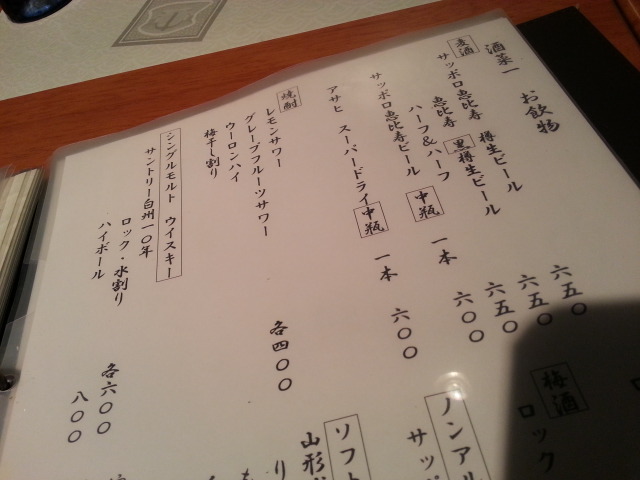 酒菜一 お飲物
麦酒
サッポロ恵比寿 樽生ビール 六五〇
恵比寿 黒樽生ビール 六五〇
ハーフ&ハーフ 六五〇
サッポロ恵比寿ビール 中瓶 一本 六〇〇
アサヒ スーパードライ 中瓶 一本 六〇〇
焼酎
レモンサワー
グレープフルーツサワー 各四〇〇
ウーロンハイ
梅干し割り
シングルモルト ウイスキー
サントリー白州一〇年
ロック・水割り 各六〇〇
ハイボール 八〇〇
梅酒
ロック
ノンアル
サッポ
ソフト
山形